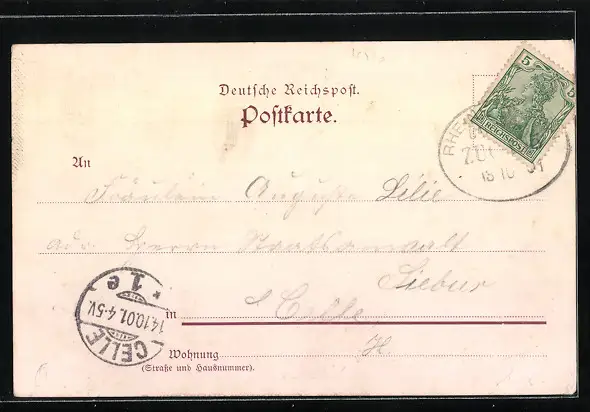 Deutsche Reichspost.
Postkarte.
5
REICHSPOST
RHE
ZUG
13 10 01
An
Fräulein Auguste Lilie
adr. Herrn Staatsanwalt
Siebur
in Celle
H.
CELLE
14.10.01. 4-5V.
* 1e
Wohnung
(Straße und Hausnummer).